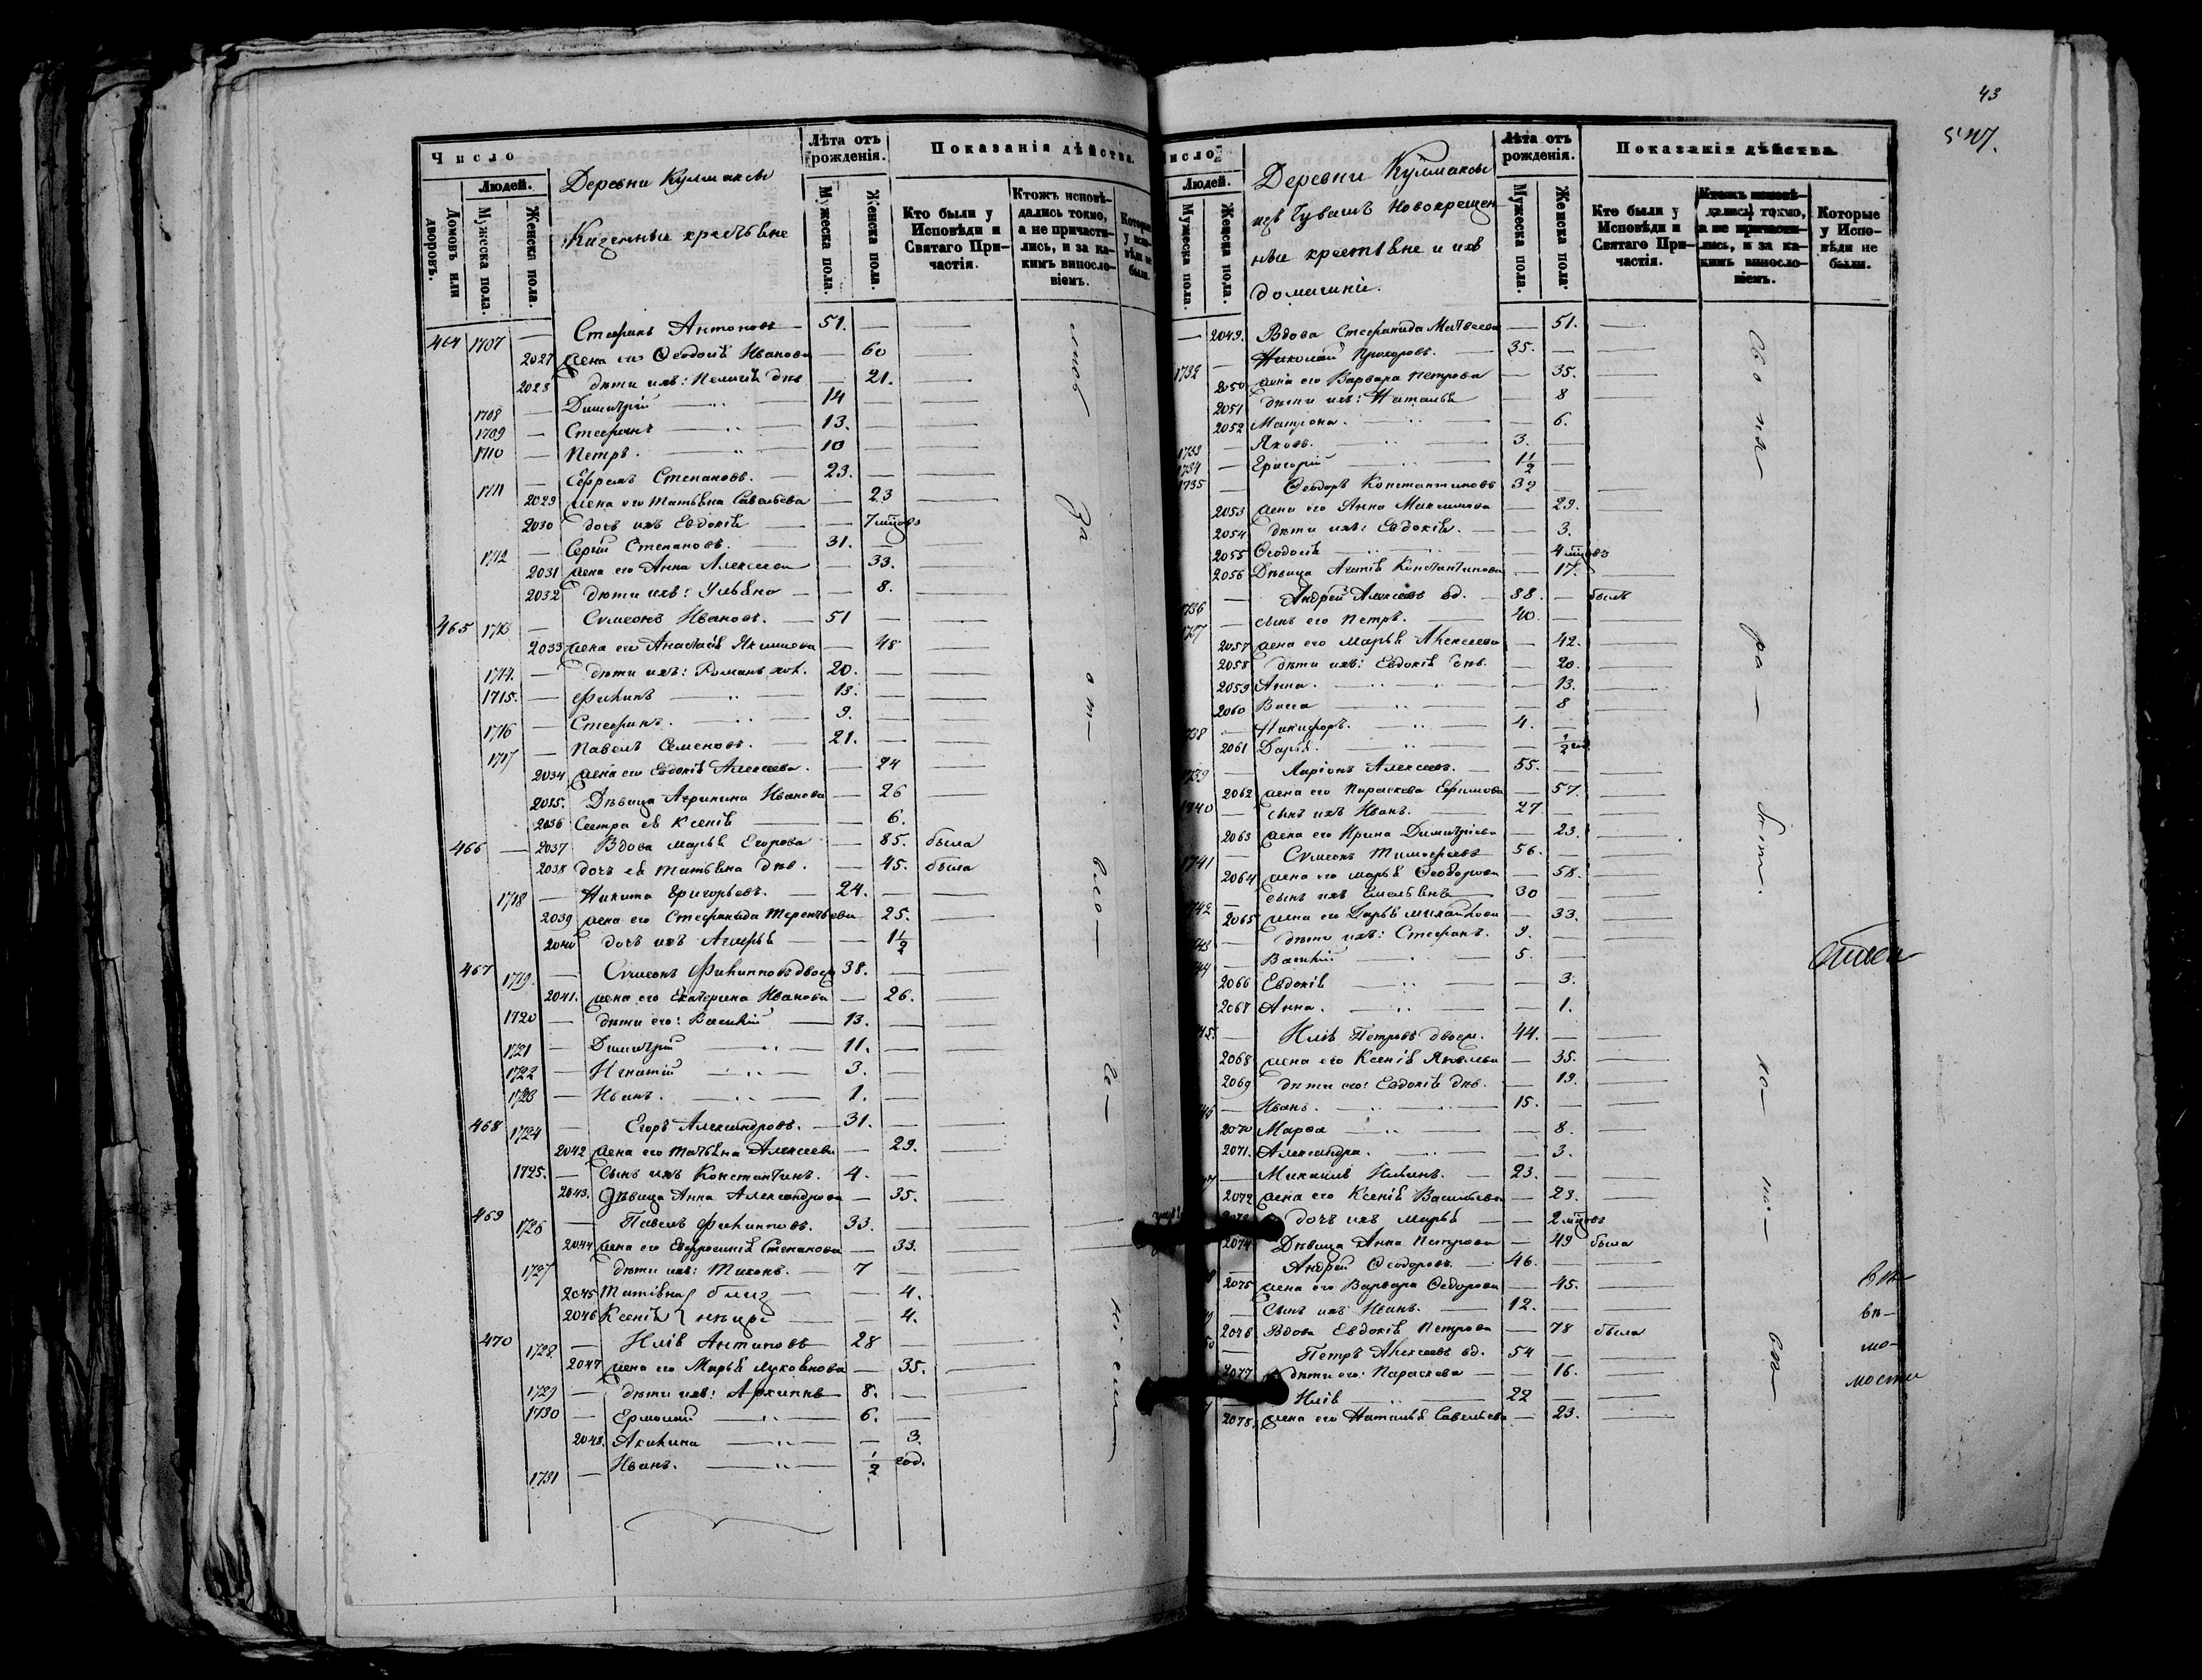 Число
Людей.
Домовъ или дворовъ.
Мужеска пола.
Женска пола.
Деревни Кулмаксы
Казенные крестьяне
Лѣта отъ рожденія.
Мужеска пола.
Женска пола.
Показанія дѣйства.
Кто были у Исповѣди и Святаго Причастія.
Ктожъ исповѣдались токмо, а не причастились, и за какимъ винословіемъ.
Которые у исповѣди не были.
464 1707 — Стефанъ Антоновъ — 51. —
2027 жена его Ѳеодосія Иванова — 60
2028 дѣти ихъ: Пелагія двк — 21.
1708 — Димитрій — 14 —
1709 — Стефанъ — 13. —
1710 — Петръ. — 10 —
1711 — Ефремъ Степановъ. — 23. —
2029 жена его Татьяна Савельева — 23
2030 дочь ихъ Евдокія — 7 мцовъ
1712 — Сергій Степановъ. — 31. —
2031 жена его Анна Алексеева — 33.
2032 дѣти ихъ: Ульяна — 8.
465 1713 — Сумеонъ Ивановъ. — 51 —
2033 жена его Анастасія Якимова — 48
1714. — дѣти ихъ: Романъ хол. 20. —
1715. — Филипъ — 13. —
1716 — Стефанъ. — 9. —
1717 — Павелъ Семеновъ. — 21. —
2034 жена его Евдокія Алексеева. — 24
2035. Дѣвица Агрипина Иванова — 26
2036 Сестра ея Ксенія — 6.
466 — 2037 Вдова Марья Егорова — 85. была
2038 дочь ея Татьяна двк. — 45. была
1718 — Никита Григорьевъ. — 24. —
2039 жена его Стефанида Терентьева 25.
2040 дочь ихъ — 1 1/2
467 1719. — Сумеонъ Филипповъ двоеж 38. —
2041. жена его Екатерина Иванова — 26.
1720 — дѣти его: Василій — 13. —
1721 — Димитрій — 11. —
1722 — Игнатій — 3. —
1723 — Иванъ. — 1. —
468 1724 — Егоръ Александровъ. — 31. —
2042 жена его Татьяна Алексеева — 29.
1725. — сынъ ихъ Константинъ. 4. —
2043. Дѣвица Анна Александрова — 35.
469 1726 — Павелъ Филиповъ. 33. —
2044 жена его Евфросинія Степанова — 33.
1727 — дѣти ихъ: Тихонъ. — 7 —
2045 Татіяна } близ — 4.
2046 Ксенія } нецы — 4.
470 1728 — Илія Антиповъ — 28 —
2047 жена его Марья Лукоянова — 35.
1729 — дѣти ихъ: Архиппъ — 8. —
1730 — Ермолай — 6. —
2048. Акилина — 3.
1731 — Иванъ. — 1/2 год.
За от-
43
Число
Людей.
Мужеска пола
Женска пола.
Деревни Кулмаксы
изъ Чувашъ Новокрещен
ные крестьяне и ихъ
домашніе.
Лѣта отъ рожденія.
Мужеска пола.
Женска пола.
Показанія дѣйства.
Кто были у Исповѣди и Святаго Причастія.
Ктожъ исповѣдались токмо, а не причастились, и за какимъ винословіемъ.
Которые у Исповѣди не были.
— 2049. Вдова Стефанида Матвеева — 51.
1732 — Николай Прохоровъ. — 35. —
2050 жена его Варвара Петрова — 35.
2051 дѣти ихъ: Наталья — 8
2052 Матрона. — 6.
1733 — Яковъ. — 3. —
1734 — Григорій — 1 1/2 —
1735 — Ѳеодоръ Константиновъ 32 —
2053 жена его Анна Максимова — 29.
2054 дѣти ихъ: Евдокія. — 3.
2055 Ѳеодосія — 4 мцовъ
2056 Дѣвица Константинова — 17.
1736 — Андрей Алексеевъ вд. — 88. — былъ
1737 — сынъ его Петръ. — 40. —
2057 жена его Марья Алексеева — 42.
2058 дѣти ихъ: Евдокія двк. — 20.
2059 Анна. — 13.
2060 Васса — 8
738 — Никифоръ. — 4. —
2061 Дарья. — 1/2 год
1739 — Ларіонъ Алексеевъ. — 55. —
2062 жена его Параскева Ефимова — 57.
1740 — сынъ ихъ Иванъ. — 27. —
2063 жена его Ирина Димитріева — 23.
1741 — Сумеонъ Тимофеевъ 56. —
2064 жена его Марья Ѳеодорова — 58.
1742 — сынъ ихъ Емельянъ — 30 —
2065 жена его Дарья Михайлова — 33.
43 — дѣти ихъ: Стефанъ. 9. —
44 — Василій — 5. —
2066 Евдокія — 3.
2067 Анна. — 1.
45. — Илія Петровъ двоеж. 44. —
2068 жена его Ксенія Яковлева — 35.
2069 дѣти его: Евдокія двк. — 19.
46 — Иванъ. — 15. —
2070 Марѳа — 8.
2071. Александра. — 3.
47 — Михаилъ Ильинъ. — 23. —
2072 жена его Ксенія Васильева — 23.
2073 дочь ихъ Марья — 2 мцовъ
2074 Дѣвица Анна Петрова — 49 была
— Андрей Ѳеодоровъ. — 46. —
2075 жена его Варвара Ѳедорова — 45.
— Сынъ ихъ Иванъ. — 12. —
2076 Вдова Евдокія Петрова — 78 была
— Петръ Алексеевъ вд. 54 —
2077 дѣти его: Параскева — 16.
— Илія — 22 —
2078. жена его Наталья Савельева — 23.